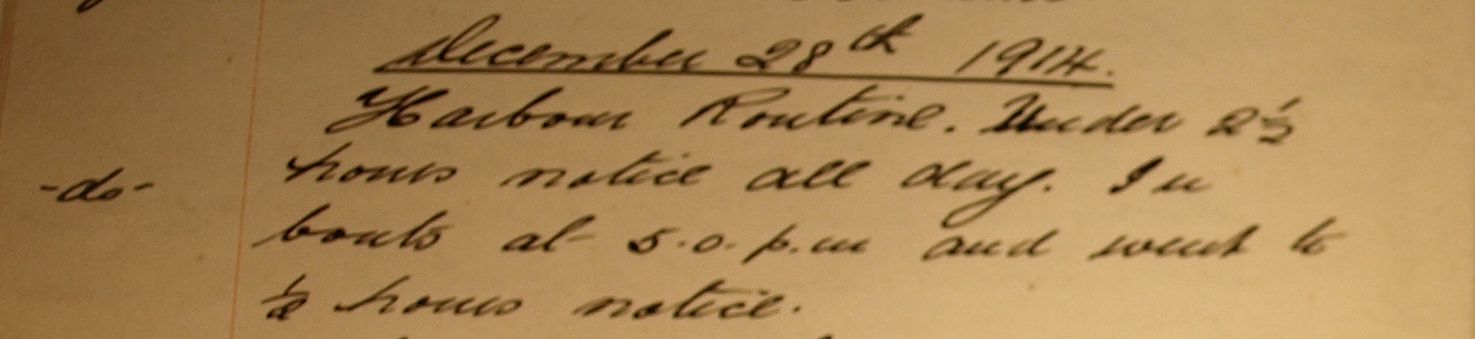 December 28th 1914.
Harbour Routine. Under 2½
-do- hours notice all day. In
boats at 5.0. p.m and went to
½ hours notice.